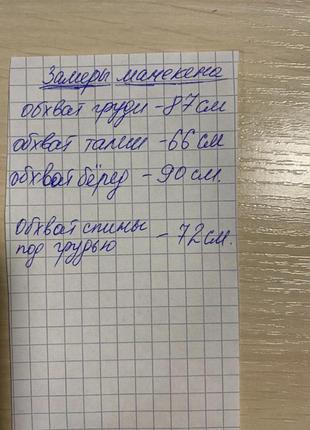 Замеры манекена
обхват груди - 87 см
обхват талии - 66 см
обхват бёдер - 90 см.
Обхват спины
под грудью - 72 см.